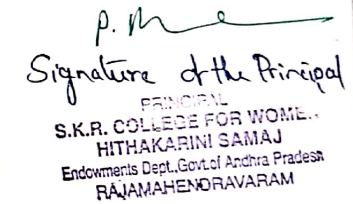 P.
Signature of the Principal
PRINCIPAL
S.K.R. COLLEGE FOR WOME..
HITHAKARINI SAMAJ
Endowments Dept.,Govt.of Andhra Pradesh
RAJAMAHENDRAVARAM